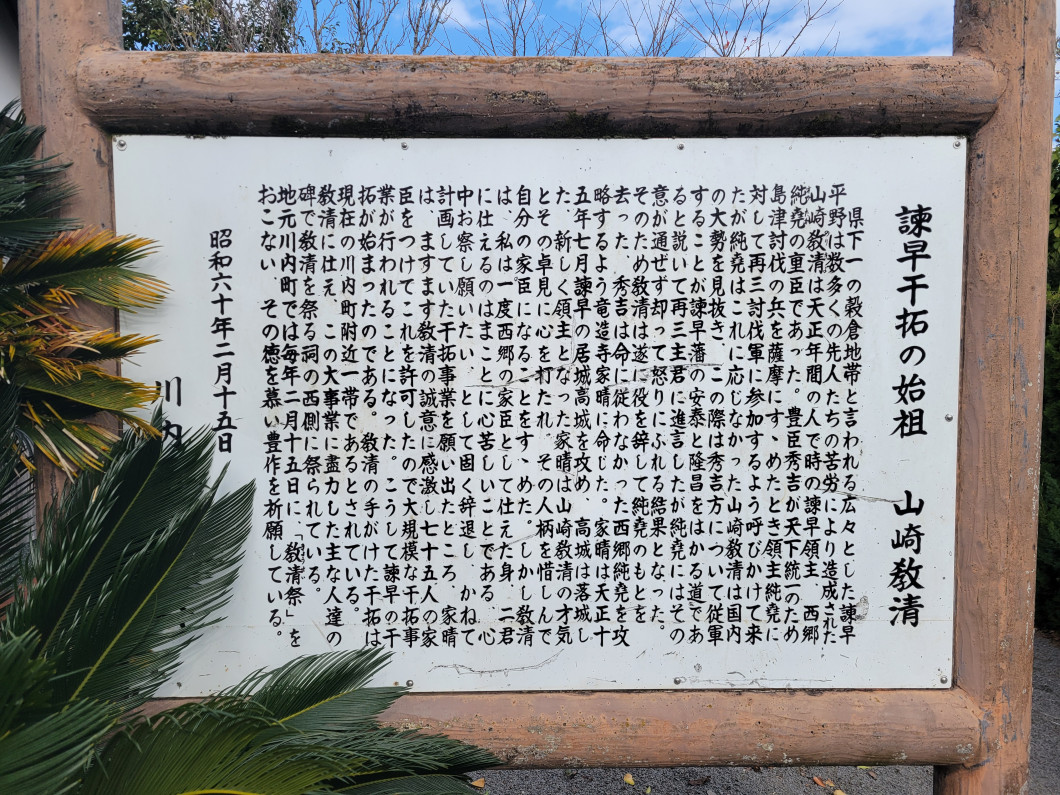 諫早干拓の始祖　山崎教清
県下一の穀倉地帯と言われる広々とした諫早
平野は数多くの先人たちの苦労により造成された
山崎教清は天正年間の人で時の諫早領主　西郷
純堯の重臣であった。豊臣秀吉が天下統一のため
島津討伐の兵を薩摩にすゝめたとき領主純堯に
対して再三討伐軍に参加するよう呼びかけて来
たが純堯はこれに応じなかった山崎教清は国内
の大勢を見抜き、この際は秀吉方について従軍
することが諫早藩の安泰と隆昌をはかる道であ
ると説いて再三主君に進言したが純堯にはその
意が通ぜず却って怒りにふれる結果となった。
そのため教清は遂に役を辞して純堯のもとを
去った、秀吉は命に従わなかった西郷純堯を攻
略するよう竜造寺家晴に命じた。家晴は天正十
五年七月諫早の居城高城を攻め　高城は落城し
た、新しく領主となった家晴は山崎教清の才気
とその卓見に心を打たれ、その人柄を惜しんで
自分の家臣になることをすゝめた。しかし教清
は、私は一度西郷の家臣として仕えた身、二君
に仕えるのはまことに心苦しいことである、心
中お察し願いたい、として固く辞退し、かねて
計画していた干拓事業を願い出たところ、家晴
は、ますます教清の誠意に感激し七十五人の家
臣をつけてこれを許可したので大規模な干拓事
業が行われることになった。こうして諫早の干
拓が始まったのである。教清の手がけた干拓は
現在の川内町附近一帯であるとされている。
教清に仕え　この大事業に盡力した主な人達の
碑で教清を祭る祠の西側に祭られている。
地元川内町では毎年二月十五日に、「教清祭」を
おこない、その徳を慕い豊作を祈願している。
昭和六十年二月十五日
川内